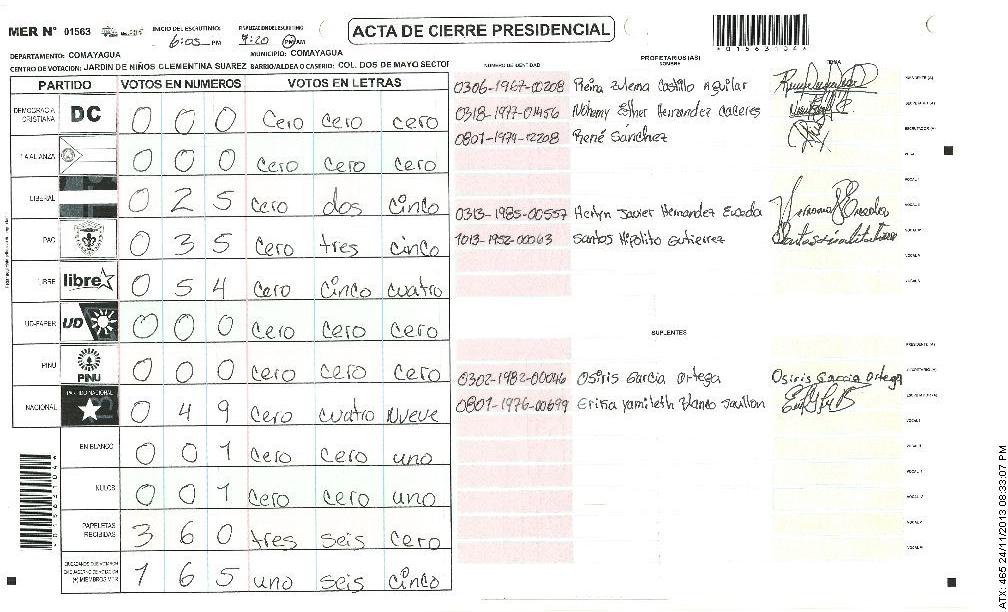 MER N° 01563 INICIO DEL ESCRUTINIO: 6:05 PM FINALIZACION DEL ESCRUTINIO 7:20 PM AM ACTA DE CIERRE PRESIDENCIAL
DEPARTAMENTO: COMAYAGUA MUNICIPIO: COMAYAGUA
CENTRO DE VOTACION: JARDIN DE NIÑOS CLEMENTINA SUAREZ BARRIO/ALDEA O CASTRIO: COL. DOS DE MAYO SECTOR
PARTIDO VOTOS EN NUMEROS VOTOS EN LETRAS
DEMOCRACIA CRISTIANA DC 0 0 0 Cero cero cero
LA ALIANZA 0 0 0 Cero Cero Cero
LIBERAL 0 2 5 Cero dos cinco
PAC 0 3 5 Cero tres cinco
LIBRE libre 0 5 4 Cero cinco cuatro
UD-FAPER UD 0 0 0 Cero Cero Cero
PINU PINU 0 0 0 Cero Cero Cero
NACIONAL PARTIDO NACIONAL 0 4 9 Cero cuatro nueve
EN BLANCO 0 0 1 Cero Cero uno
NULOS 0 0 1 Cero Cero uno
PAPELETAS RECIBIDAS 3 6 0 tres seis cero
CIUDADANOS QUE VOTARON
(+) MIEMBROS MER 1 6 5 uno seis cinco
NUMERO DE IDENTIDAD PROPIETARIOS(AS) NOMBRE FIRMA
0306-1967-00208 Reina Zulema Castillo Aguilar PRESIDENTE (A)
0318-1977-01456 Nohemy Esther Hernandez Caceres SECRETARIO (A)
0801-1974-12208 René Sánchez ESCRUTADOR (A)
0313-1985-00557 Herlyn Javier Hernandez
1013-1952-00063 Santos Hipolito Gutierrez
SUPLENTES
PRESIDENTE (A)
0302-1982-00046 Osiris Garcia Ortega Osiris Garcia Ortega SECRETARIO (A)
0801-1976-00699 Erika Yamileth Blanco ESCRUTADOR (A)
ATX: 465 24/11/2013 08:33:07 PM